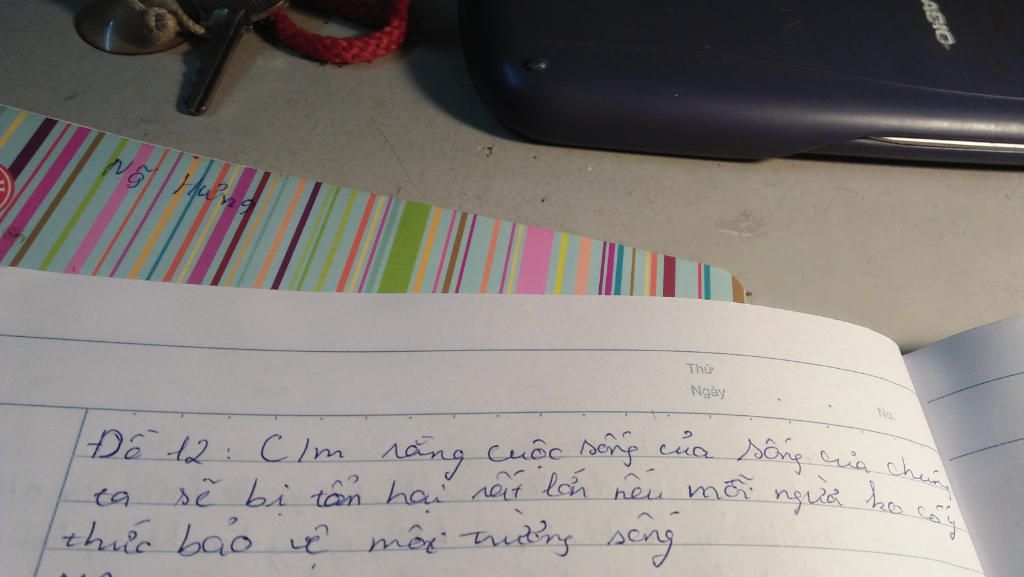 CASIO
Ngô Hưng
Thứ
Ngày
No.
Đề 12: C/m rằng cuộc sống của sống của chúng
ta sẽ bị tổn hại rất lớn nếu mỗi người ko có ý
thức bảo vệ môi trường sống